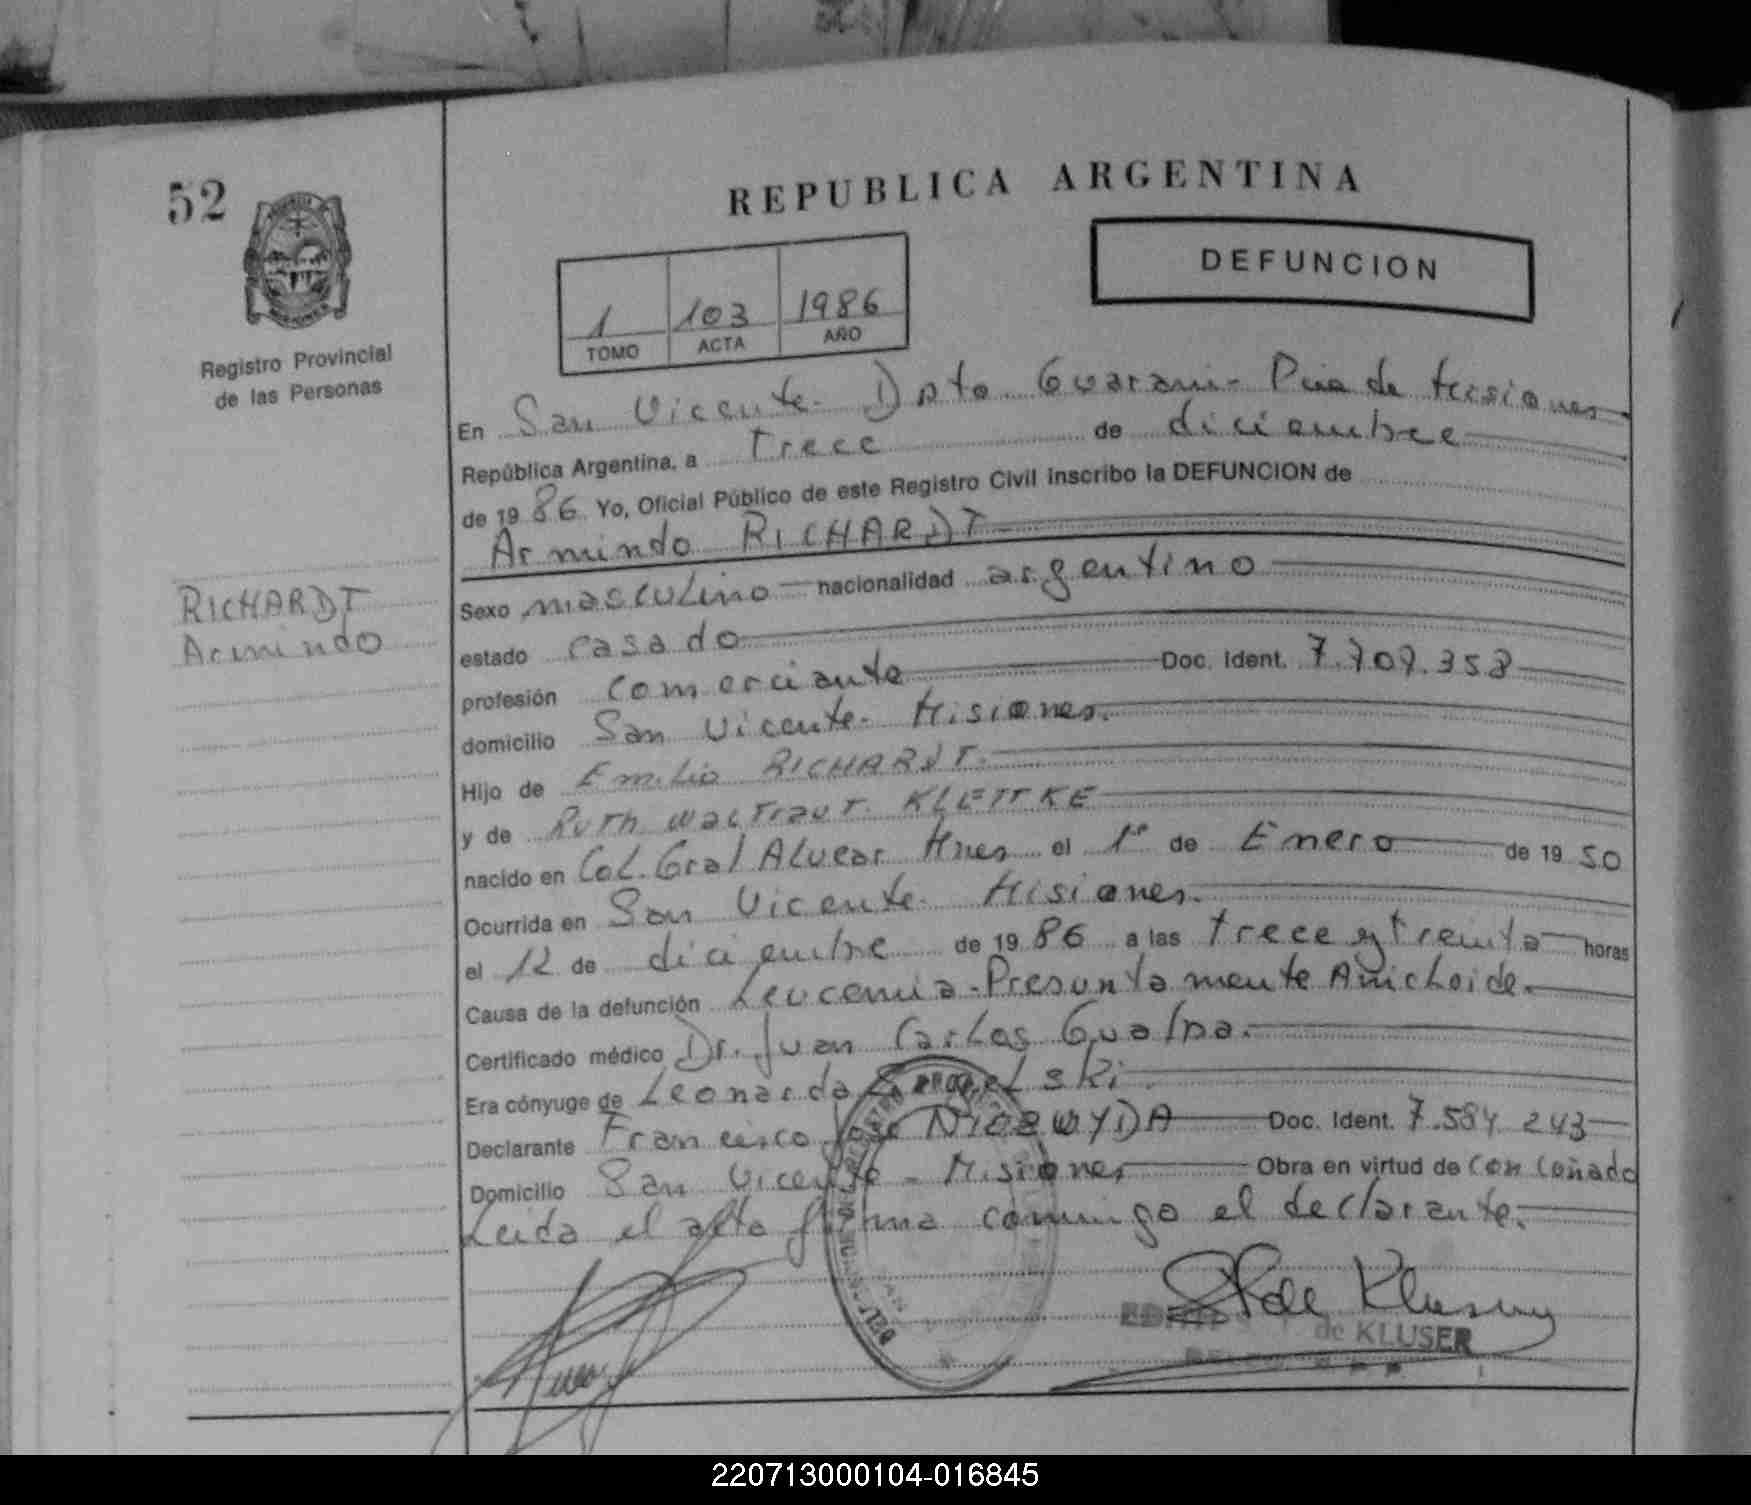 52
REPUBLICA ARGENTINA
DEFUNCION
1 103 1986
TOMO ACTA AÑO
Registro Provincial
de las Personas
En San Vicente- Dpto Guarani- Pcia de Misiones
República Argentina, a trece de diciembre
de 19 86 Yo, Oficial Público de este Registro Civil inscribo la DEFUNCION de
Armindo RICHARDT
RICHARDT
Armindo
Sexo masculino nacionalidad argentino
estado casado
profesión comerciante Doc. Ident. 7.709.353
domicilio San Vicente- Misiones.
Hijo de Emilio RICHARDT.
y de Ruth Waltraut KLETTKE
nacido en Col. Gral Alvear Mnes el 1º de Enero de 19 50
Ocurrida en San Vicente- Misiones.
el 12 de diciembre de 19 86 a las trece y treinta horas
Causa de la defunción Leucemia-Presuntamente
Certificado médico Dr. Juan Carlos Gualpa.
Era cónyuge de Leonarda
Declarante Francisco José NIEZWYDA Doc. Ident. 7.584.243
Domicilio San Vicente - Misiones Obra en virtud de con coñado
Leida el acta firma conmigo el declarante.
de KLUSER
220713000104-016845